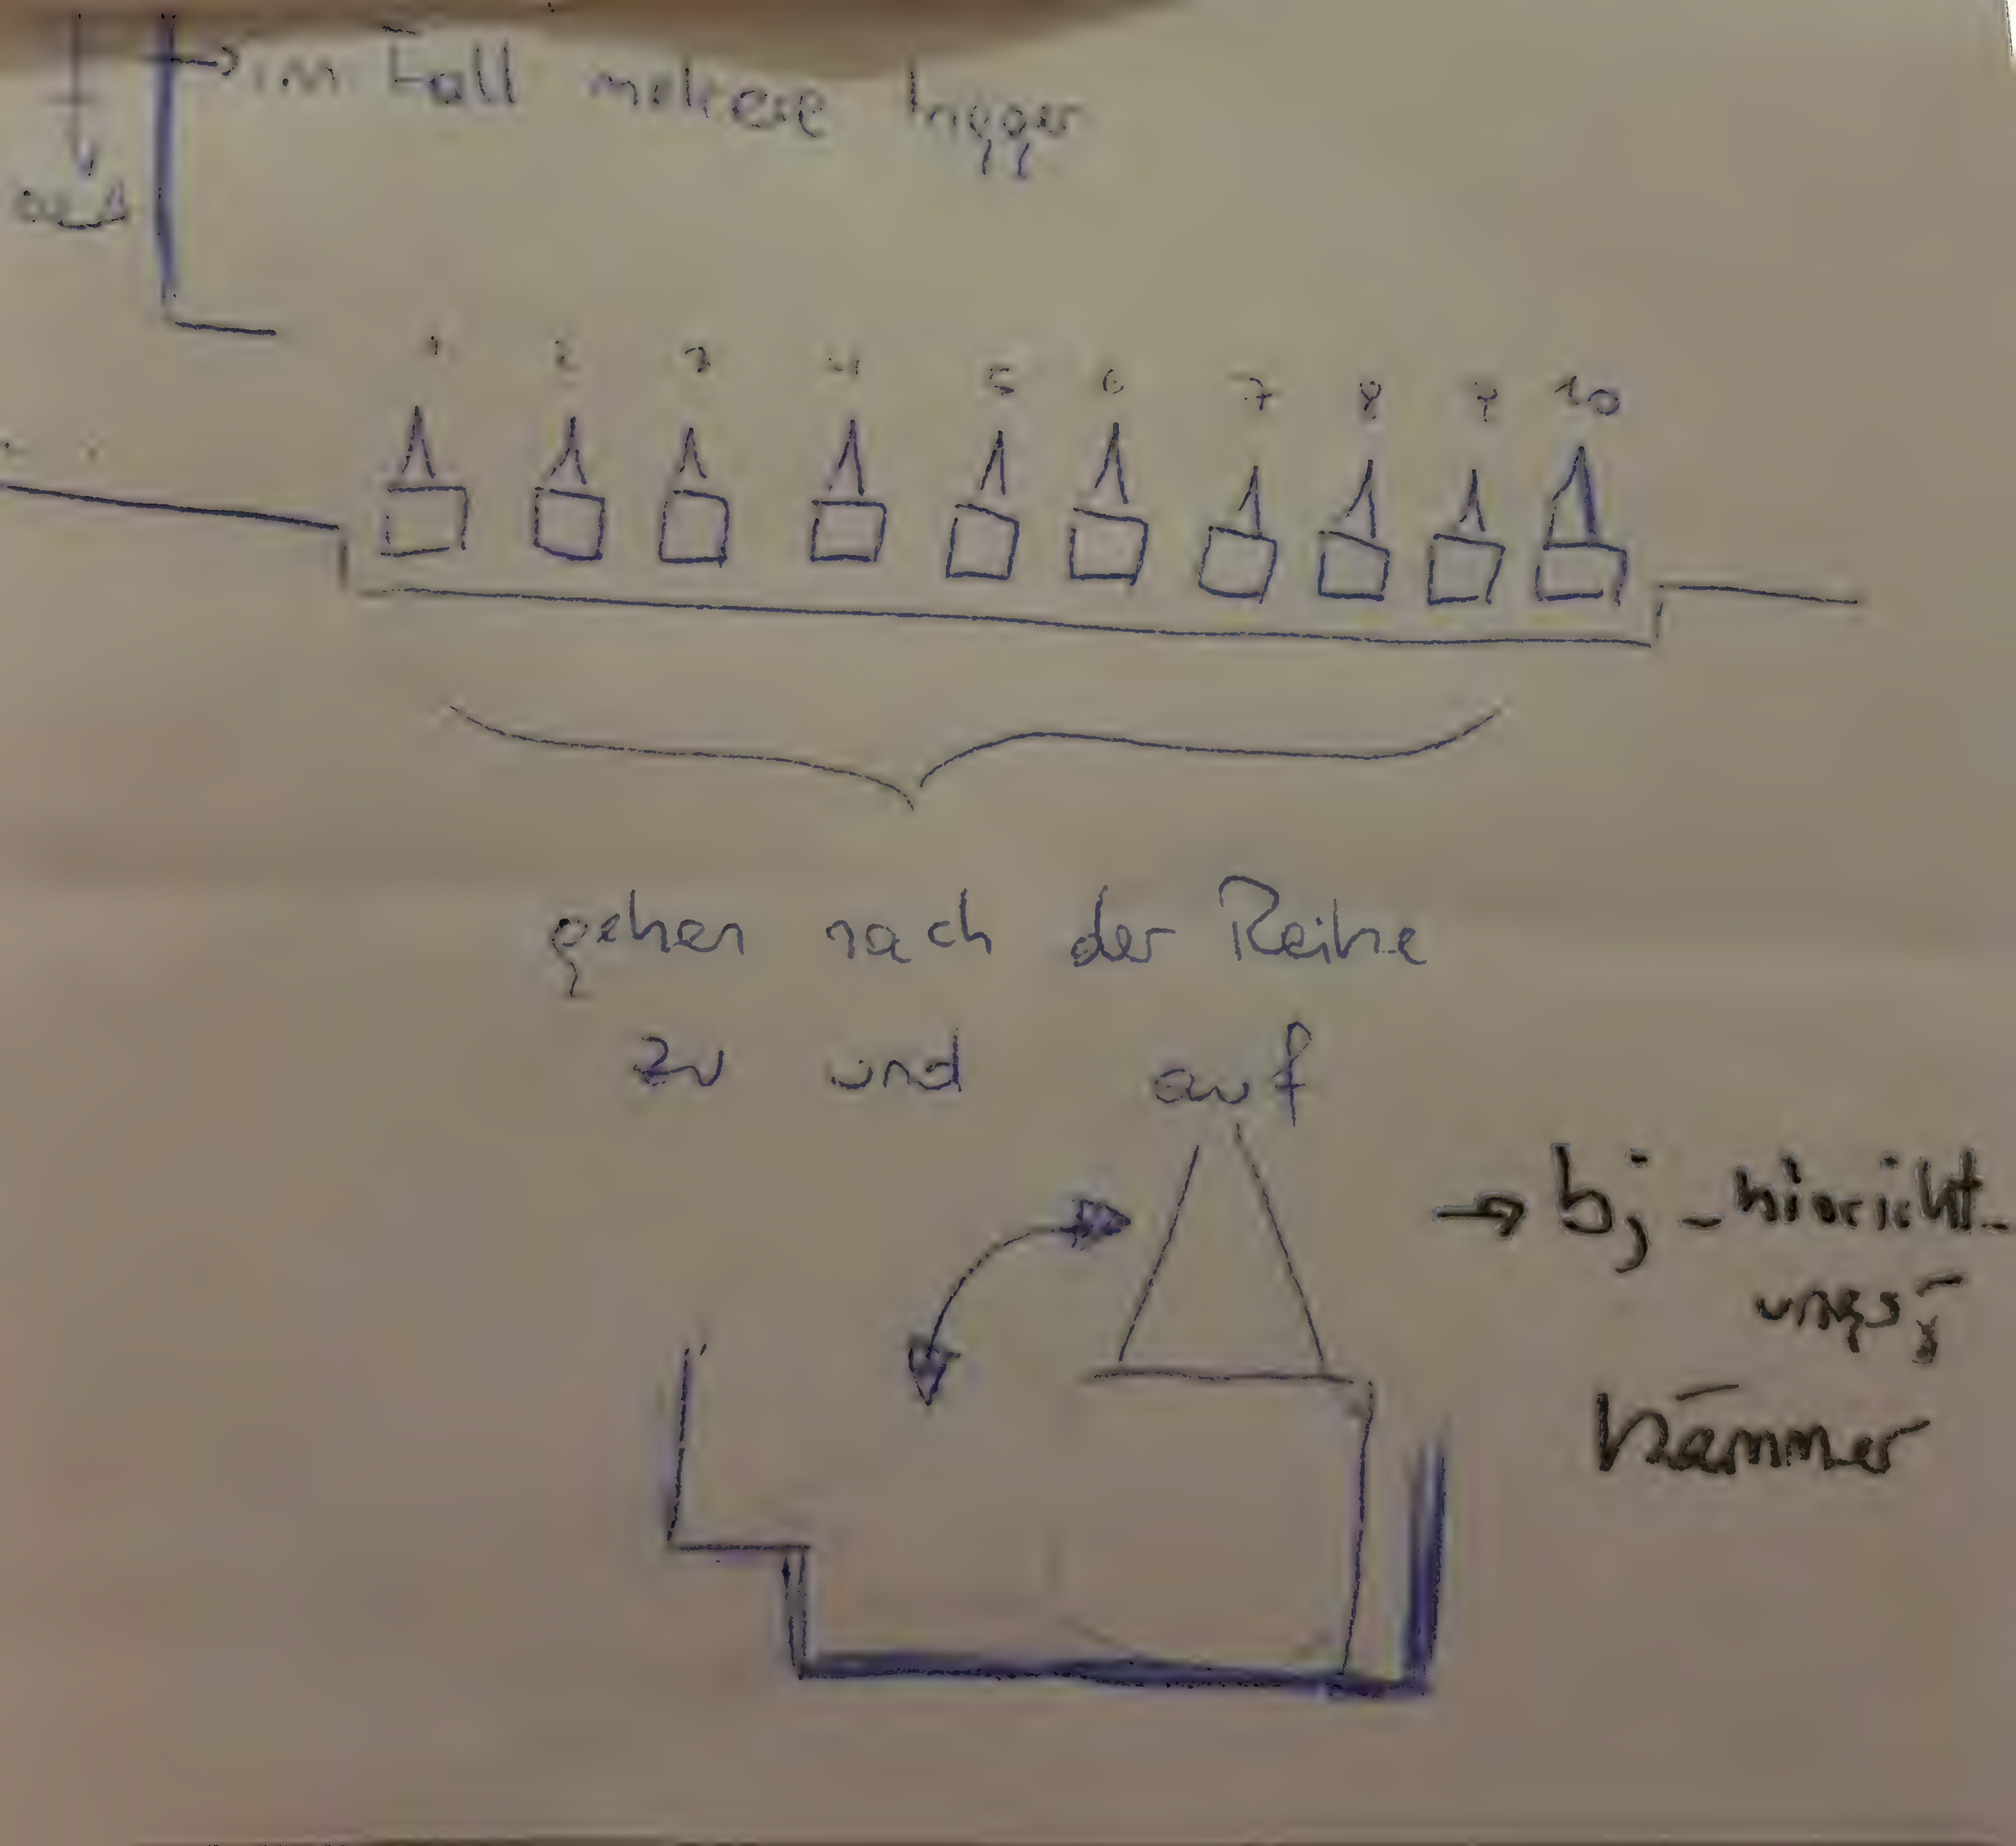 im Fall mehrere trigger
1 2 3 4 5 6 7 8 9 10
gehen nach der Reihe
zu und auf
→ bj - hinricht-
ungs-
kammer